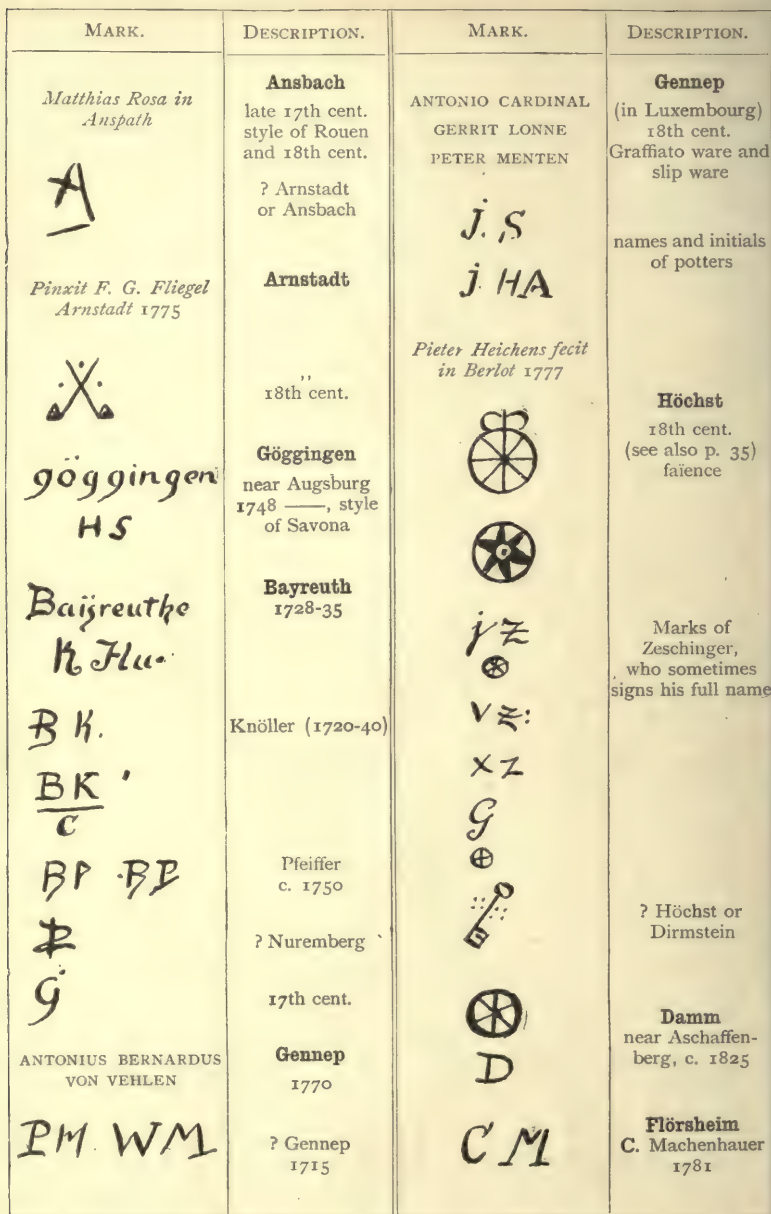 MARK.
DESCRIPTION.
Matthias Rosa in
Anspath
Ansbach
late 17th cent.
style of Rouen
and 18th cent.
A
? Arnstadt
or Ansbach
Pinxit F. G. Fliegel
Arnstadt 1775
Arnstadt
,,
18th cent.
göggingen
HS
Göggingen
near Augsburg
1748 ——, style
of Savona
Baÿreuthe
K Hu.
Bayreuth
1728-35
B K.
Knöller (1720-40)
BK '
C
BP BP
Pfeiffer
c. 1750
? Nuremberg
G
17th cent.
ANTONIUS BERNARDUS
VON VEHLEN
Gennep
1770
PM. WM
? Gennep
1715
MARK.
DESCRIPTION.
ANTONIO CARDINAL
GERRIT LONNE
PETER MENTEN
Gennep
(in Luxembourg)
18th cent.
Graffiato ware and
slip ware
j. S
j. HA
names and initials
of potters
Pieter Heichens fecit
in Berlot 1777
Höchst
18th cent.
(see also p. 35)
faïence
jz
Marks of
Zeschinger,
who sometimes
signs his full name
vz:
xz
G
? Höchst or
Dirmstein
D
Damm
near Aschaffen-
berg, c. 1825
C M
Flörsheim
C. Machenhauer
1781